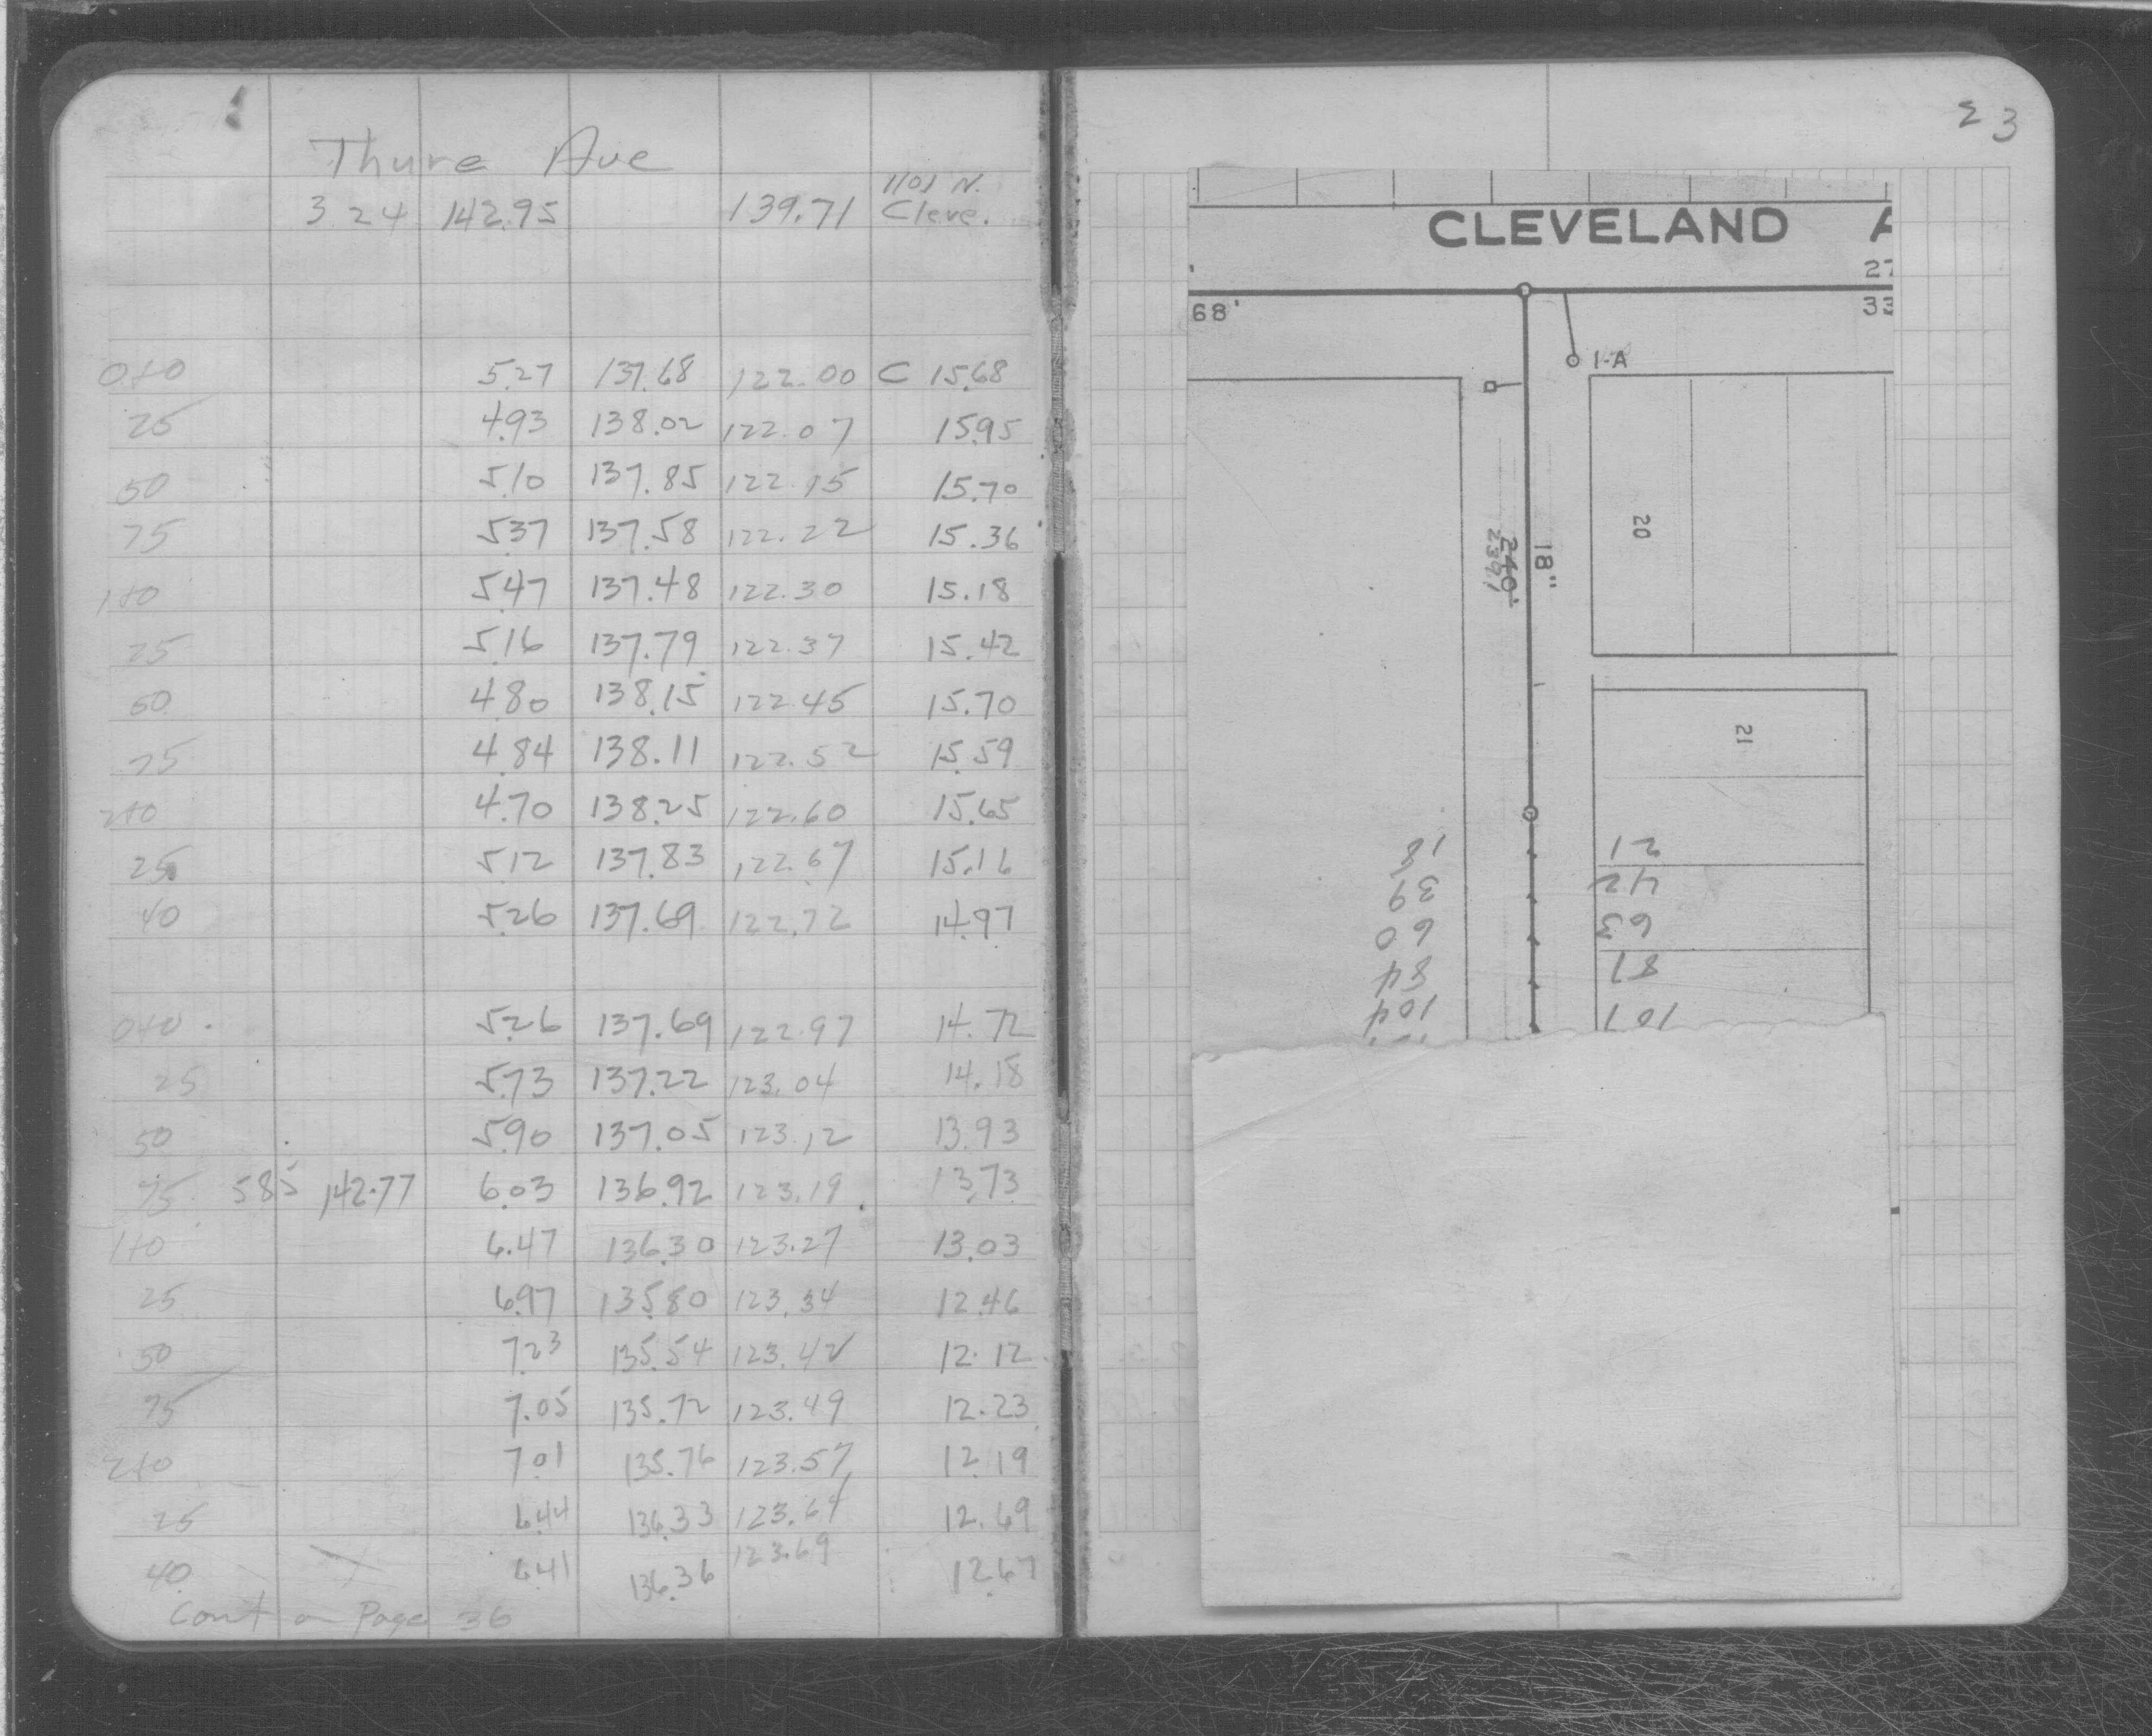 Thure Ave
3.24 142.95 139.71 1101 N. Cleve.
0+0 5.27 137.68 122.00 C 15.68
25 4.93 138.02 122.07 15.95
50 5.10 137.85 122.15 15.70
75 5.37 137.58 122.22 15.36
1+0 5.47 137.48 122.30 15.18
25 5.16 137.79 122.37 15.42
50 4.80 138.15 122.45 15.70
75 4.84 138.11 122.52 15.59
2+0 4.70 138.25 122.60 15.65
25 5.12 137.83 122.67 15.16
40 5.26 137.69 122.72 14.97
0+0 5.26 137.69 122.97 14.72
25 5.73 137.22 123.04 14.18
50 5.90 137.05 123.12 13.93
75 5.85 142.77 6.03 136.92 123.19 13.73
1+0 6.47 136.30 123.27 13.03
25 6.97 135.80 123.34 12.46
50 7.23 135.54 123.42 12.12
75 7.05 135.72 123.49 12.23
2+0 7.01 135.76 123.57 12.19
25 6.44 136.33 123.64 12.69
40 6.41 136.36 123.69 12.67
Cont on Page 36
23
CLEVELAND A
27
68' 33
1-A
20
18"
240'
239.1
21
18 21
39 42
60 63
84 87
104 107